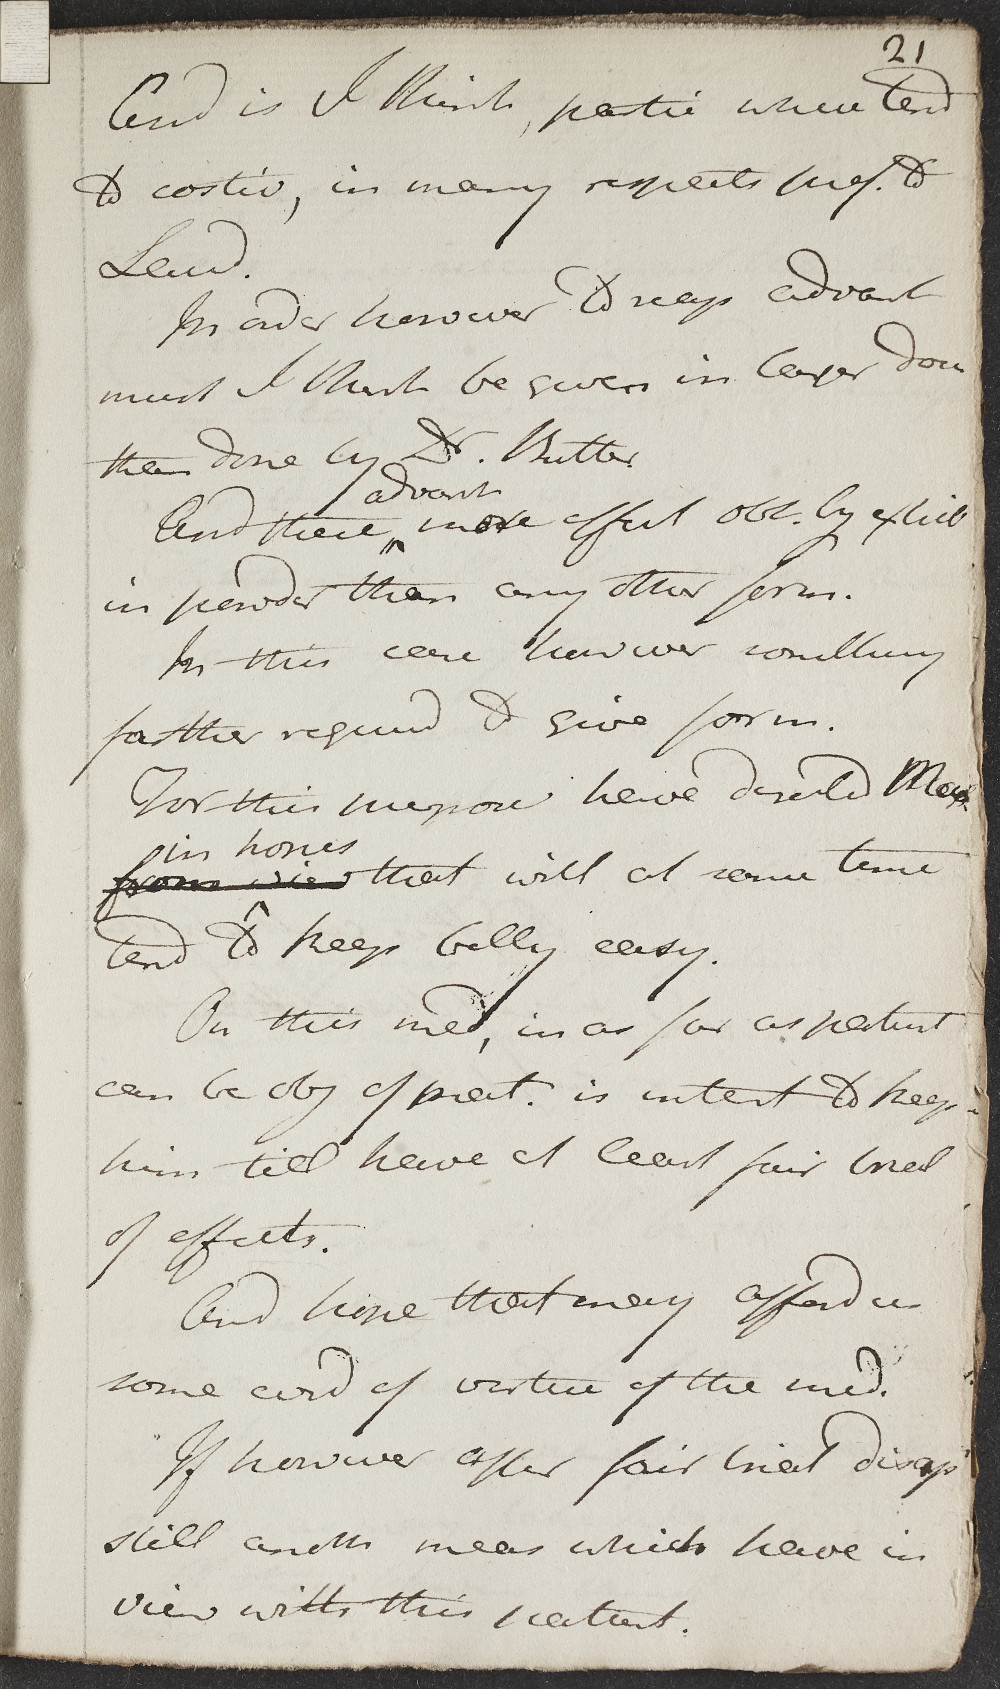 21
And is I think, partic where tend
to costiv, in many respects pref. to
Laud.
In order however to reap advant
must I think be given in larger dose
than done by Dr. Butter
And there advant more effect obt. by exhib
in powder than any other form.
In this case however something
farther required to give form.
For this purpose have directed
in hopes
from view that will at same time
tend to keep belly easy.
On this med, in as far as patient
can be obj of pract. is intent to keep
him till have at least fair trial
of effects.
And hope that may afford us
some evid of virtue of the med.
If however after fair trial disap
still anoth meas which have in
view with this patient.